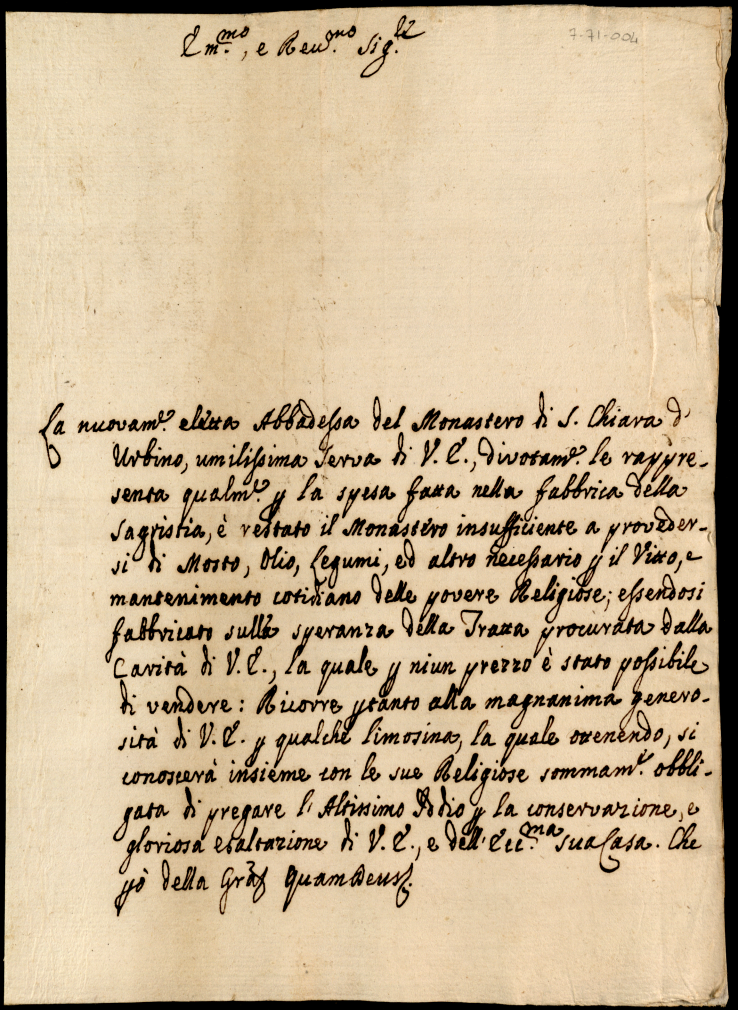 7-71-004
Em.mo, e Reu.mo Sig.re
La nuovam.te eletta Abbadessa del Monastero di S. Chiara d'
Urbino, umilissima Serva di V. E., divotam.te le rappre-
senta qualm.te p la spesa fatta nella fabbrica della
Sagristia, è restato il Monastero insufficiente a proveder-
si di Mosto, Olio, Legumi, ed altro necessario p il Vitto, e
mantenimento cotidiano delle povere Religiose; essendosi
fabbricato sulla speranza della Tratta procurata dalla
Carità di V. E., la quale p niun prezzo è stato possibile
di vendere: Ricorre ptanto alla magnanima genero-
sità di V. E. p qualche limosina, la quale ottenendo, si
conoscerà insieme con le sue Religiose sommam.te obbli-
gata di pregare l'Altissimo Iddio p la conservazione, e
gloriosa esaltazione di V. E., e dell'Ecc.ma sua Casa. Che
pò della Graz Quam Deus